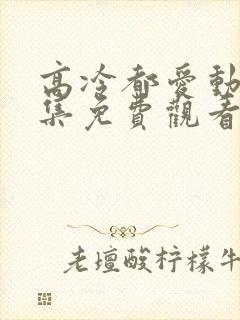 高冷都愛動
集免費觀看
老壇酸柠檬牛